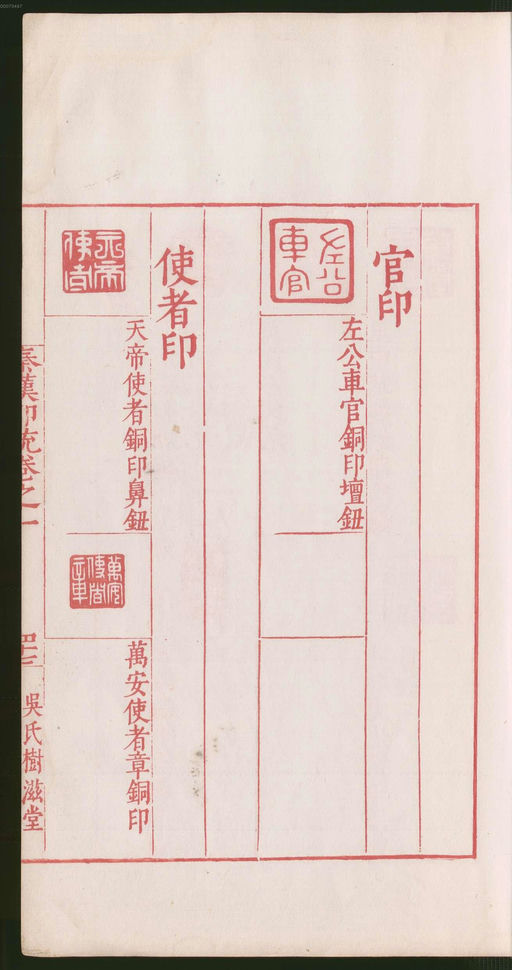 00079487
官印
左公
車官
左公車官銅印壇鈕
使者印
天帝
使者
天帝使者銅印鼻鈕
萬安
使者
章
萬安使者章銅印
秦漢印統卷之一
吳氏樹滋堂